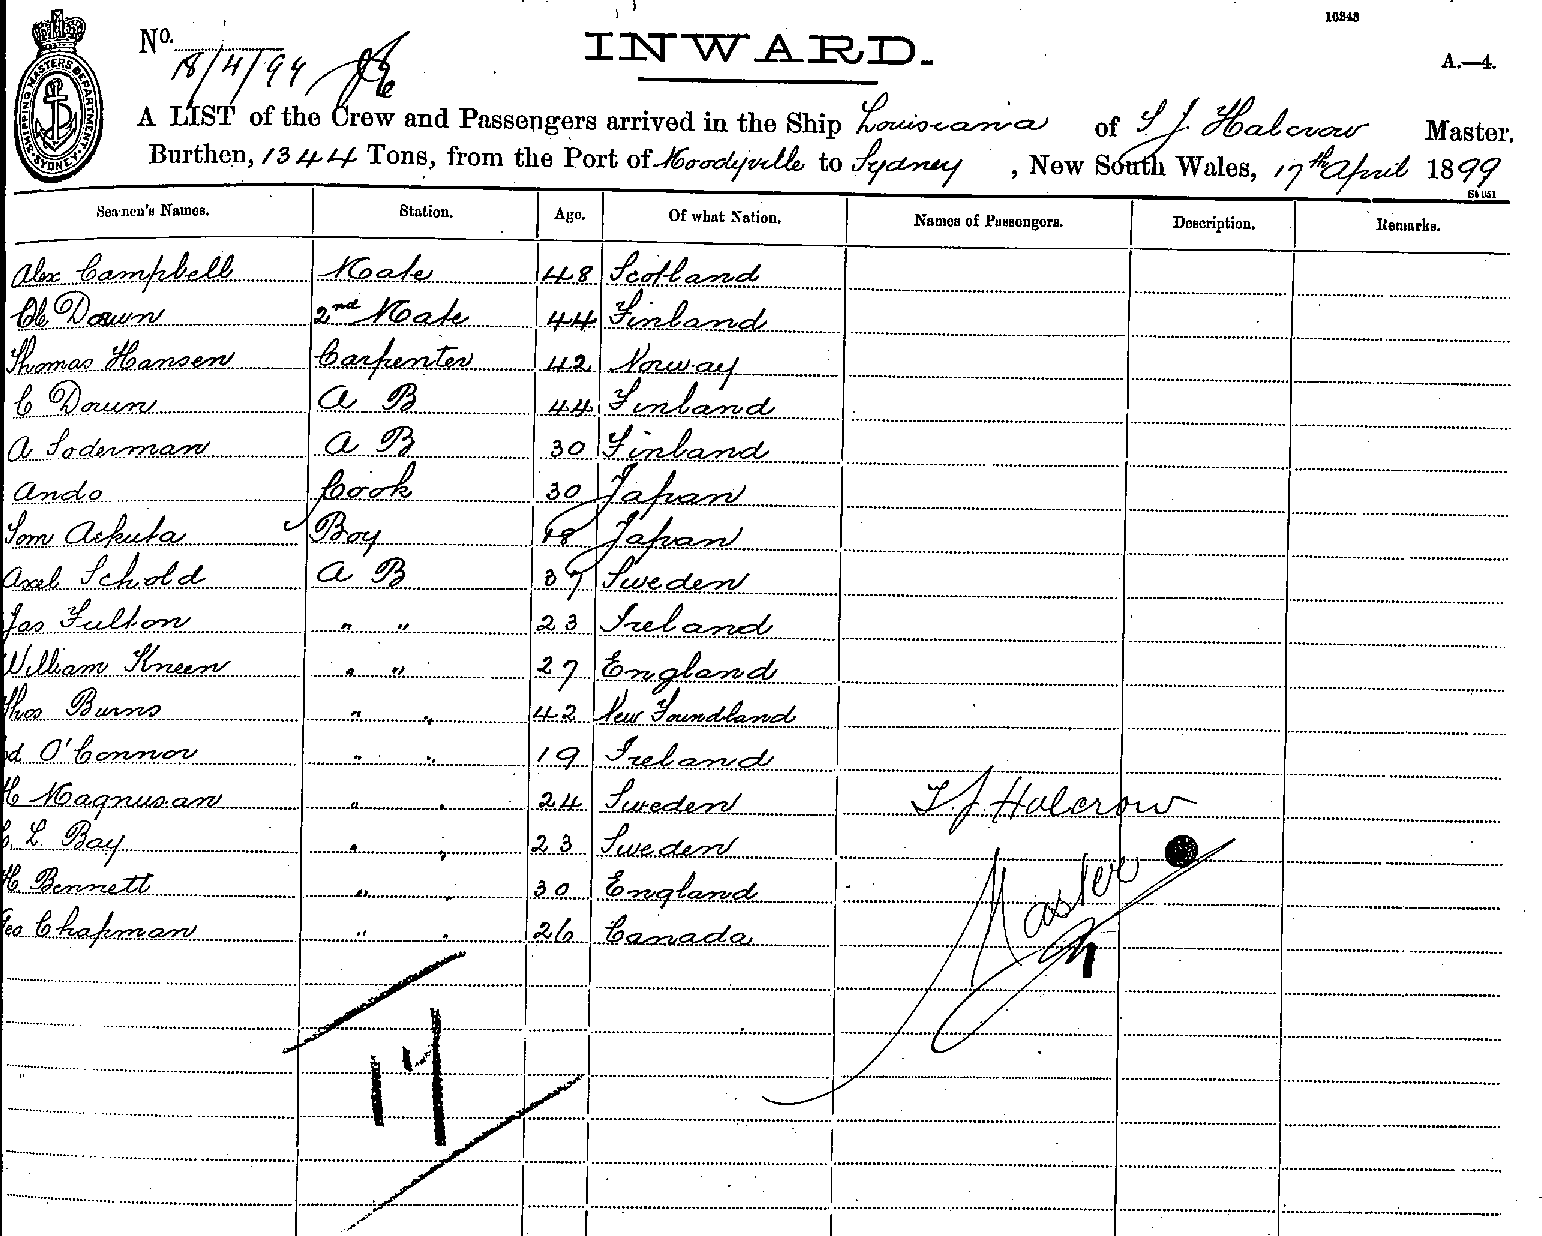 10343
No. 18/4/99
INWARD.
A.—4.
SHIPPING MASTERS DEPARTMENT SYDNEY
A LIST of the Crew and Passengers arrived in the Ship Louisiana of T J Halcrow Master,
Burthen, 1344 Tons, from the Port of Moodyville to Sydney , New South Wales, 17th April 1899
Seamen's Names. Station. Age. Of what Nation. Names of Passengers. Description. Remarks.
Alex Campbell Mate 48 Scotland
2nd Mate 44 Finland
Thomas Hansen Carpenter 42 Norway
C Doun A B 44 Finland
A Soderman A B 30 Finland
Ando Cook 30 Japan
Tom Boy 18 Japan
Axel Schold A B 37 Sweden
Jas Fulton " " 23 Ireland
William Kneen " " 27 England
Thos Burns " " 42 New Foundland
O'Connor " " 19 Ireland
H Magnusan " " 24 Sweden T. J. Halcrow
C. L Bay " " 23 Sweden Master
H Bennett " " 30 England
Geo Chapman " " 26 Canada
17